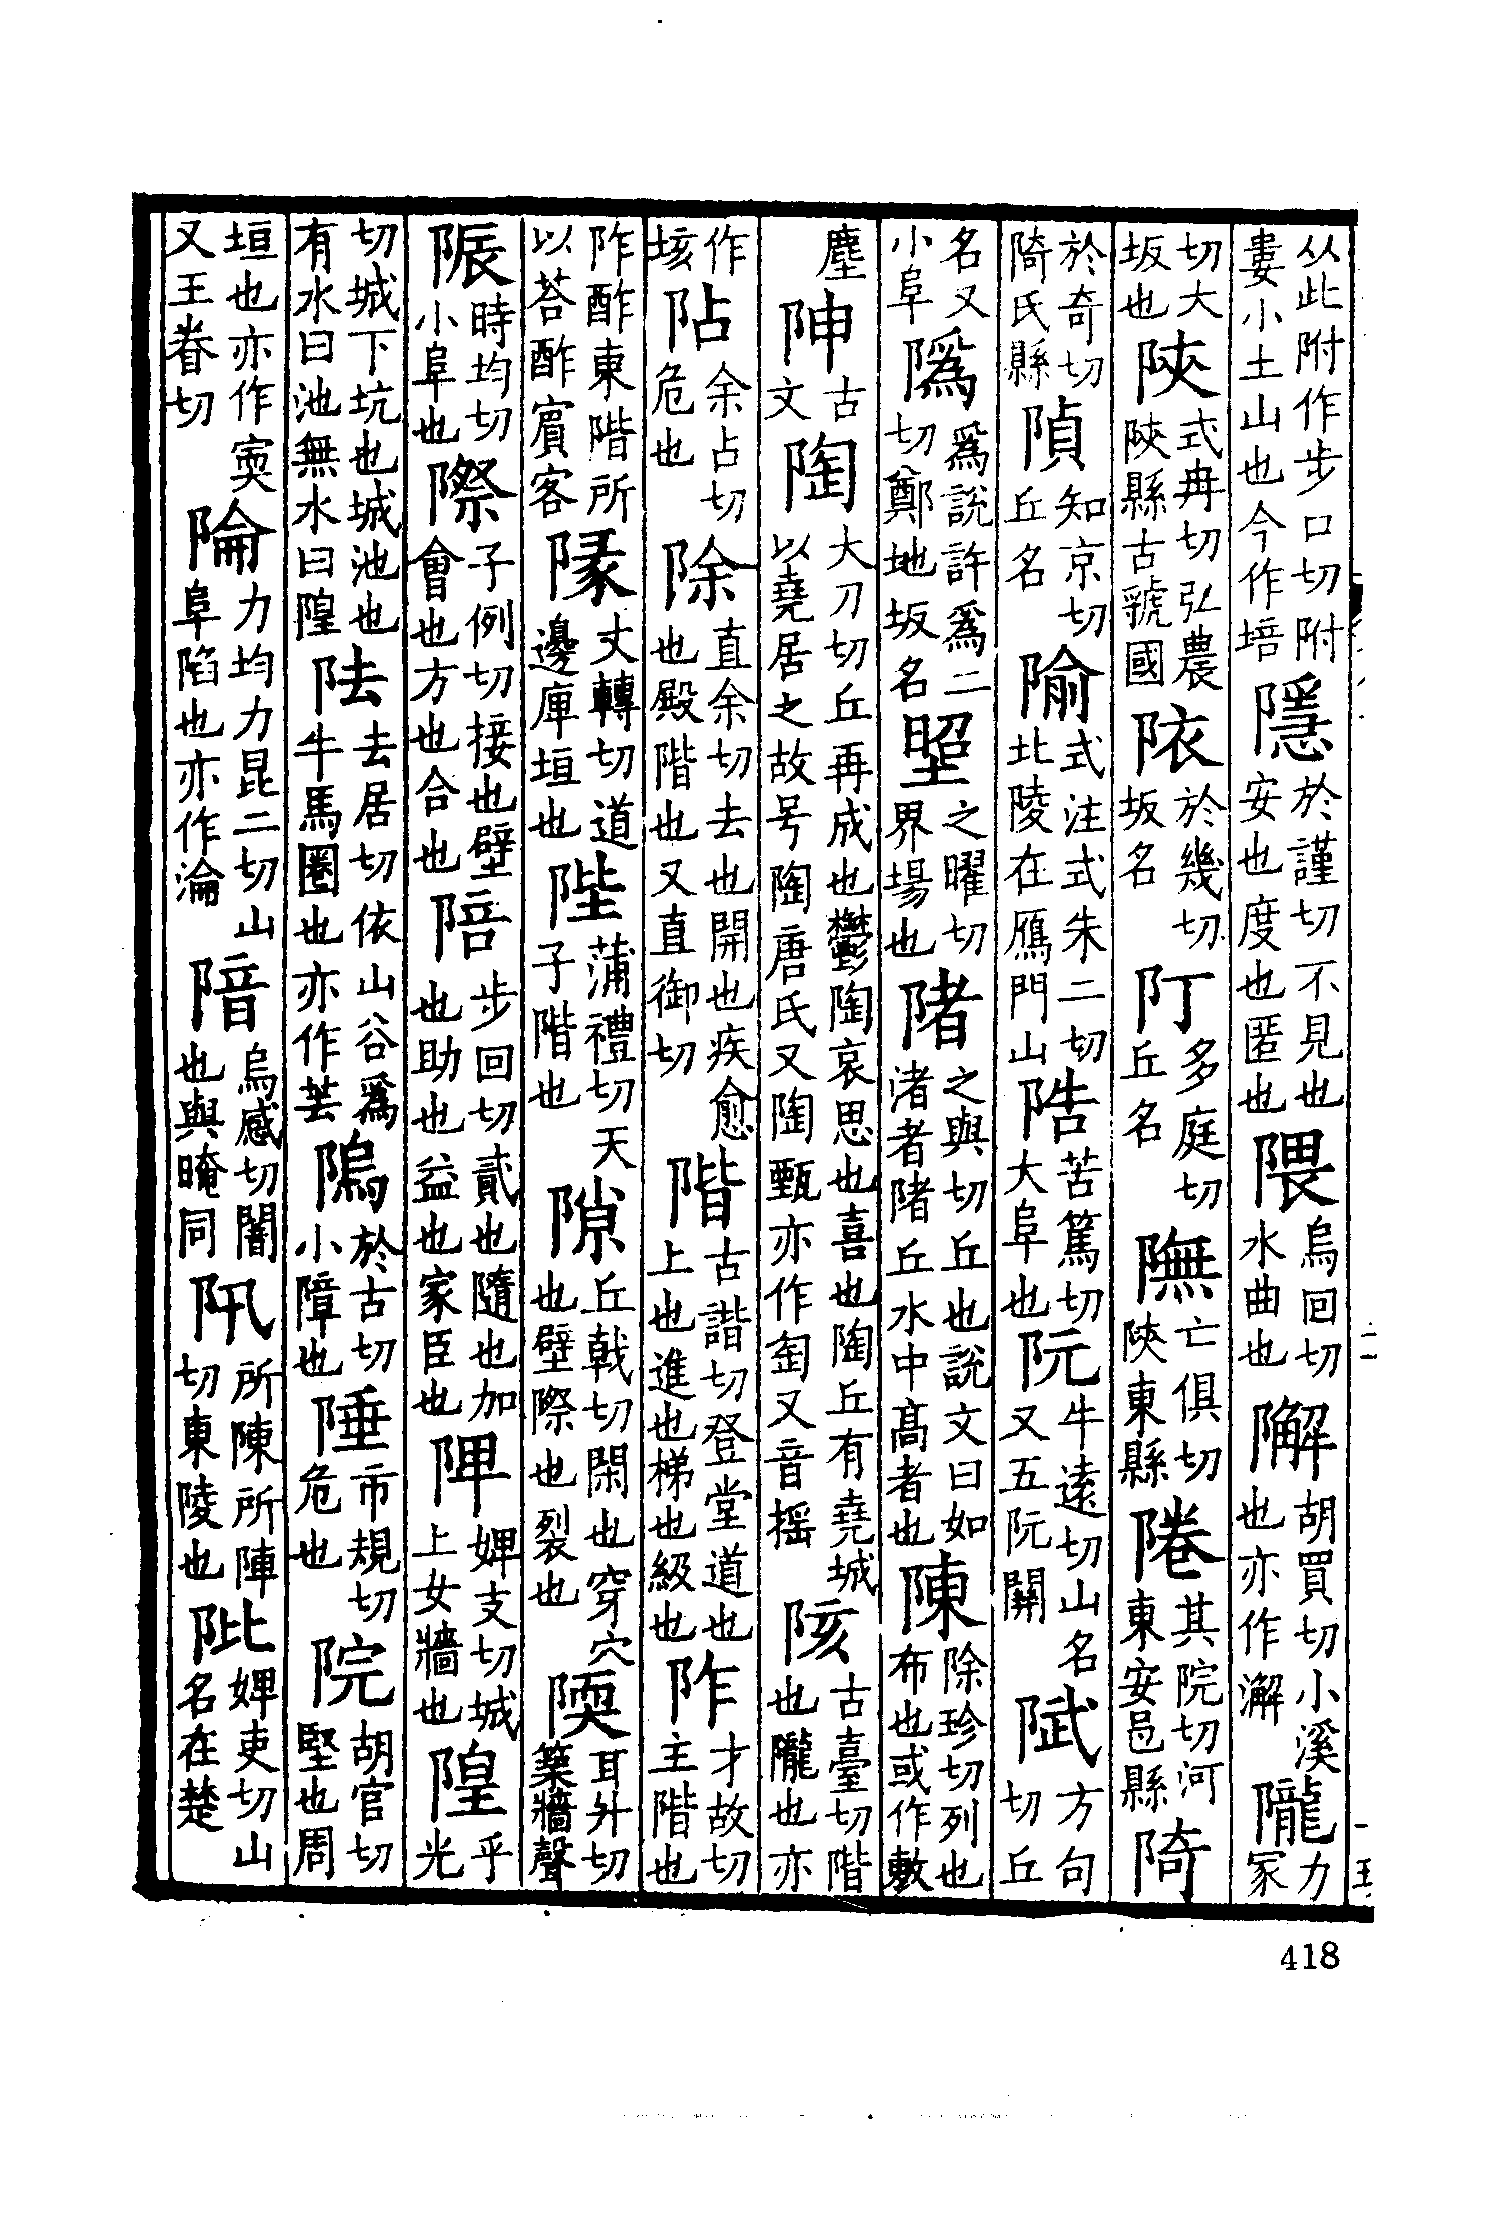 从此附作步口切附婁小土山也今作培隱於謹切不見也安也度也匿也隈烏回切水曲也𨼬胡買切小溪也亦作澥隴力冢
切大坂也陜式冉切弘農陜縣古虢國𨸝於幾切坂名阝丁多庭切丘名𨼊亡俱切陜東縣䧧其院切河東安邑縣陭
於奇切陭氏縣𨺟知京切丘名隃式注式朱二切北陵在鴈門山𨹟苦篤切大阜也阮牛遠切山名又五阮關𨺰方句切丘
名又小阜䧦爲說許爲二切鄭地坂名之曜切界場也陼之與切丘也說文曰如渚者陼丘水中高者也陳除珍切列也布也或作敶
塵𨸬古文陶大刀切丘再成也鬱陶哀思也喜也陶丘有堯城以堯居之故号陶唐氏又陶甄亦作匋又音摇陔古臺切階也隴也亦
作垓阽余占切危也除直余切去也開也疾愈也殿階也又直御切階古諧切登堂道也上也進也梯也級也阼才故切主階也
阼酢東階所以荅酢賓客䧘丈轉切道邊庳垣也陛蒲禮切天子階也隙丘戟切閑也穿穴也壁際也裂也陾耳升切築牆聲
陙時均切小阜也際子例切接也壁會也方也合也陪步回切貳也隨也加也助也益也家臣也陴婢支切城上女牆也隍乎光
切城下坑也城池也有水曰池無水曰隍阹去居切依山谷爲牛馬圈也亦作㘢隖於古切小障也陲市規切危也院胡官切堅也周
垣也亦作寏又王眷切陯力均力昆二切山阜陷也亦作淪隌烏感切闇也與晻同阠所陳所陣切東陵也阰婢吏切山名在楚
418